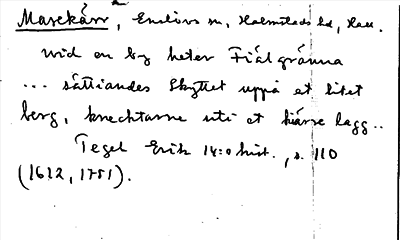 Marekärr, Enslövs sn, Halmstads hd, Hall.
wid en by heter Fiälgränna
... sättiandes skyttet uppå et litet
berg, knechtarne uti et kiärre lagg..
Tegel Erik 14:s hist., s. 110
(1612, 1751).